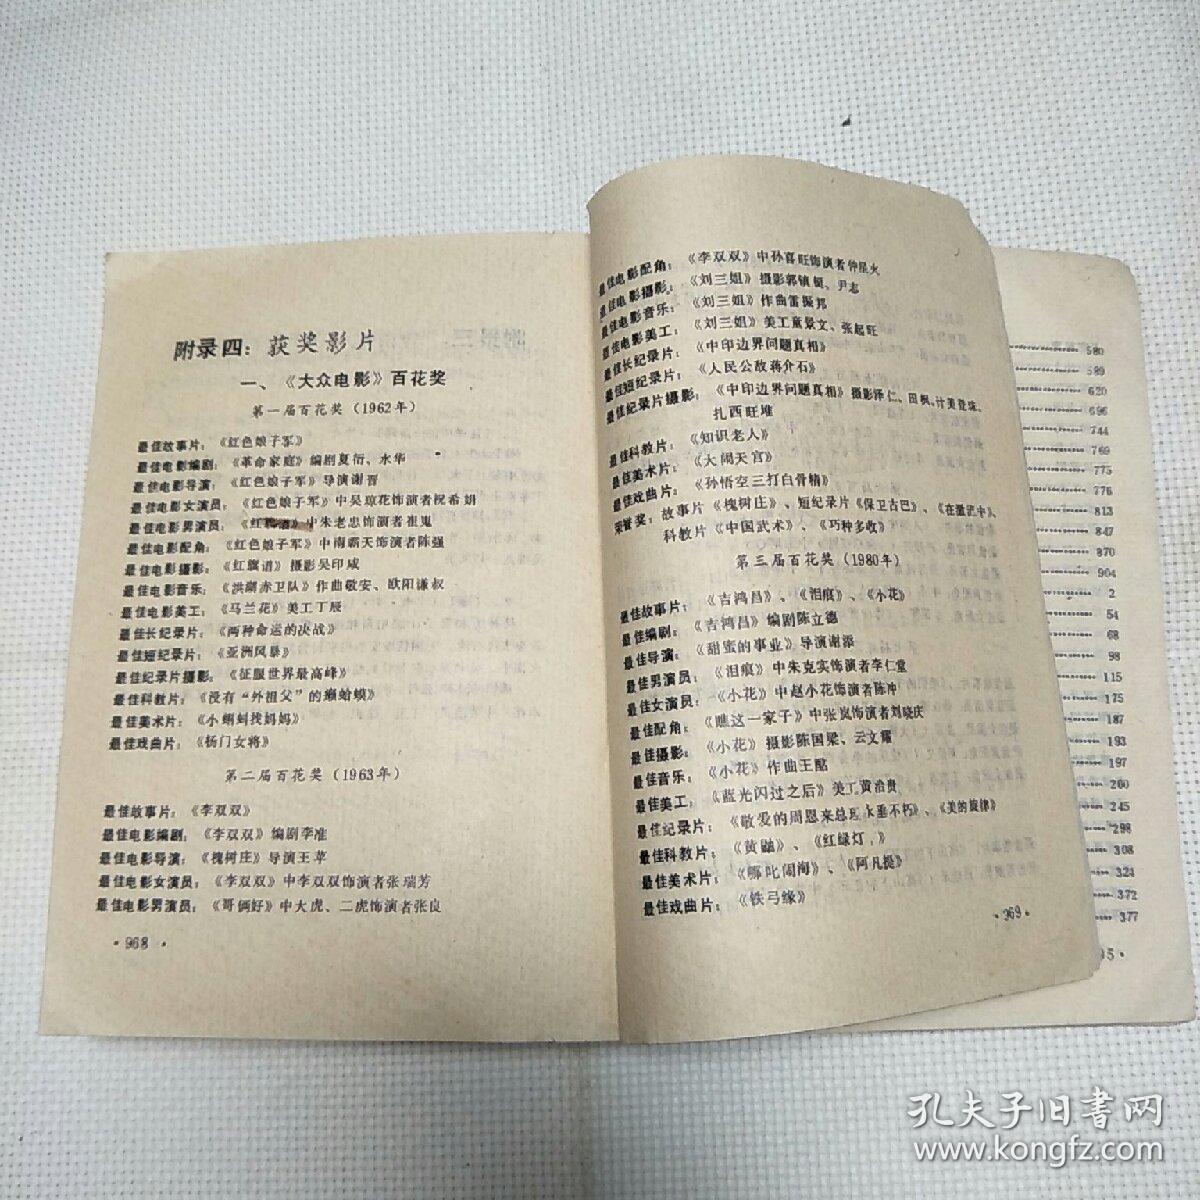 附录四：获奖影片
一、《大众电影》百花奖
第一届百花奖（1962年）
最佳故事片：《红色娘子军》
最佳电影编剧：《革命家庭》编剧夏衍、水华
最佳电影导演：《红色娘子军》导演谢晋
最佳电影女演员：《红色娘子军》中吴琼花饰演者祝希娟
最佳电影男演员：《红旗谱》中朱老忠饰演者崔嵬
最佳电影配角：《红色娘子军》中南霸天饰演者陈强
最佳电影摄影：《红旗谱》摄影吴印咸
最佳电影音乐：《洪湖赤卫队》作曲敬安、欧阳谦叔
最佳电影美工：《马兰花》美工丁辰
最佳长纪录片：《两种命运的决战》
最佳短纪录片：《亚洲风暴》
最佳纪录片摄影：《征服世界最高峰》
最佳科教片：《没有“外祖父”的癞蛤蟆》
最佳美术片：《小蝌蚪找妈妈》
最佳戏曲片：《杨门女将》
第二届百花奖（1963年）
最佳故事片：《李双双》
最佳电影编剧：《李双双》编剧李准
最佳电影导演：《槐树庄》导演王苹
最佳电影女演员：《李双双》中李双双饰演者张瑞芳
最佳电影男演员：《哥俩好》中大虎、二虎饰演者张良
·968·
最佳电影配角：《李双双》中孙喜旺饰演者仲星火
最佳电影摄影：《刘三姐》摄影郭镇铤、尹志
最佳电影音乐：《刘三姐》作曲雷振邦
最佳电影美工：《刘三姐》美工童景文、张起旺
最佳长纪录片：《中印边界问题真相》
最佳短纪录片：《人民公敌蒋介石》
最佳纪录片摄影：《中印边界问题真相》摄影泽仁、田枫、计美登珠、
扎西旺堆
最佳科教片：《知识老人》
最佳美术片：《大闹天宫》
最佳戏曲片：《孙悟空三打白骨精》
荣誉奖：故事片《槐树庄》、短纪录片《保卫古巴》、《在激流中》、
科教片《中国武术》、《巧种多收》
第三届百花奖（1980年）
最佳故事片：《吉鸿昌》、《泪痕》、《小花》
最佳编剧：《吉鸿昌》编剧陈立德
最佳导演：《甜蜜的事业》导演谢添
最佳男演员：《泪痕》中朱克实饰演者李仁堂
最佳女演员：《小花》中赵小花饰演者陈冲
最佳配角：《瞧这一家子》中张岚饰演者刘晓庆
最佳摄影：《小花》摄影陈国梁、云文耀
最佳音乐：《小花》作曲王酩
最佳美工：《蓝光闪过之后》美工黄治贵
最佳纪录片：《敬爱的周恩来总理永垂不朽》、《美的旋律》
最佳科教片：《黄鼬》、《红绿灯下》
最佳美术片：《哪吒闹海》、《阿凡提》
最佳戏曲片：《铁弓缘》
·969·
580
589
620
696
744
769
775
776
813
847
870
904
2
54
68
98
115
175
187
193
197
200
245
298
308
323
372
377
孔夫子旧书网
www.kongfz.com